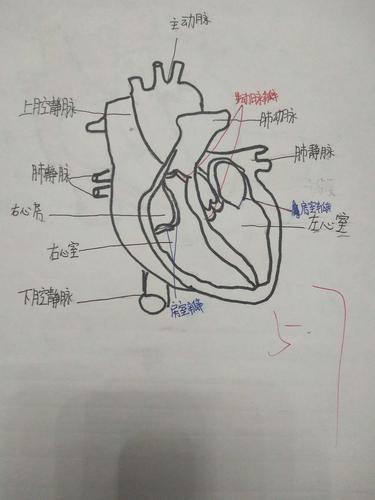 主动脉
上腔静脉
动脉瓣
肺动脉
肺静脉
肺静脉
右心房
房室瓣
左心室
右心室
下腔静脉
房室瓣